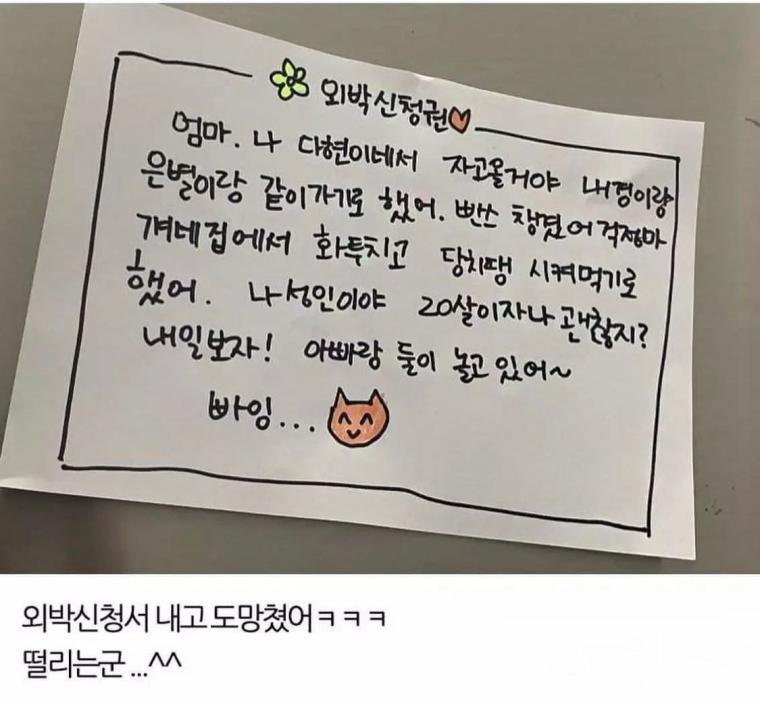 외박신청권
엄마. 나 다현이네서 자고올거야 내경이랑
은별이랑 같이가기로 했어. 빤쓰 챙겼어 걱정마
걔네집에서 화투치고 당치땡 시켜먹기로
했어. 나성인이야 20살이자나 괜찮지?
내일보자! 아빠랑 둘이 놀고 있어~
빠잉...
외박신청서 내고 도망쳤어ㅋㅋㅋ
떨리는군 ...^^